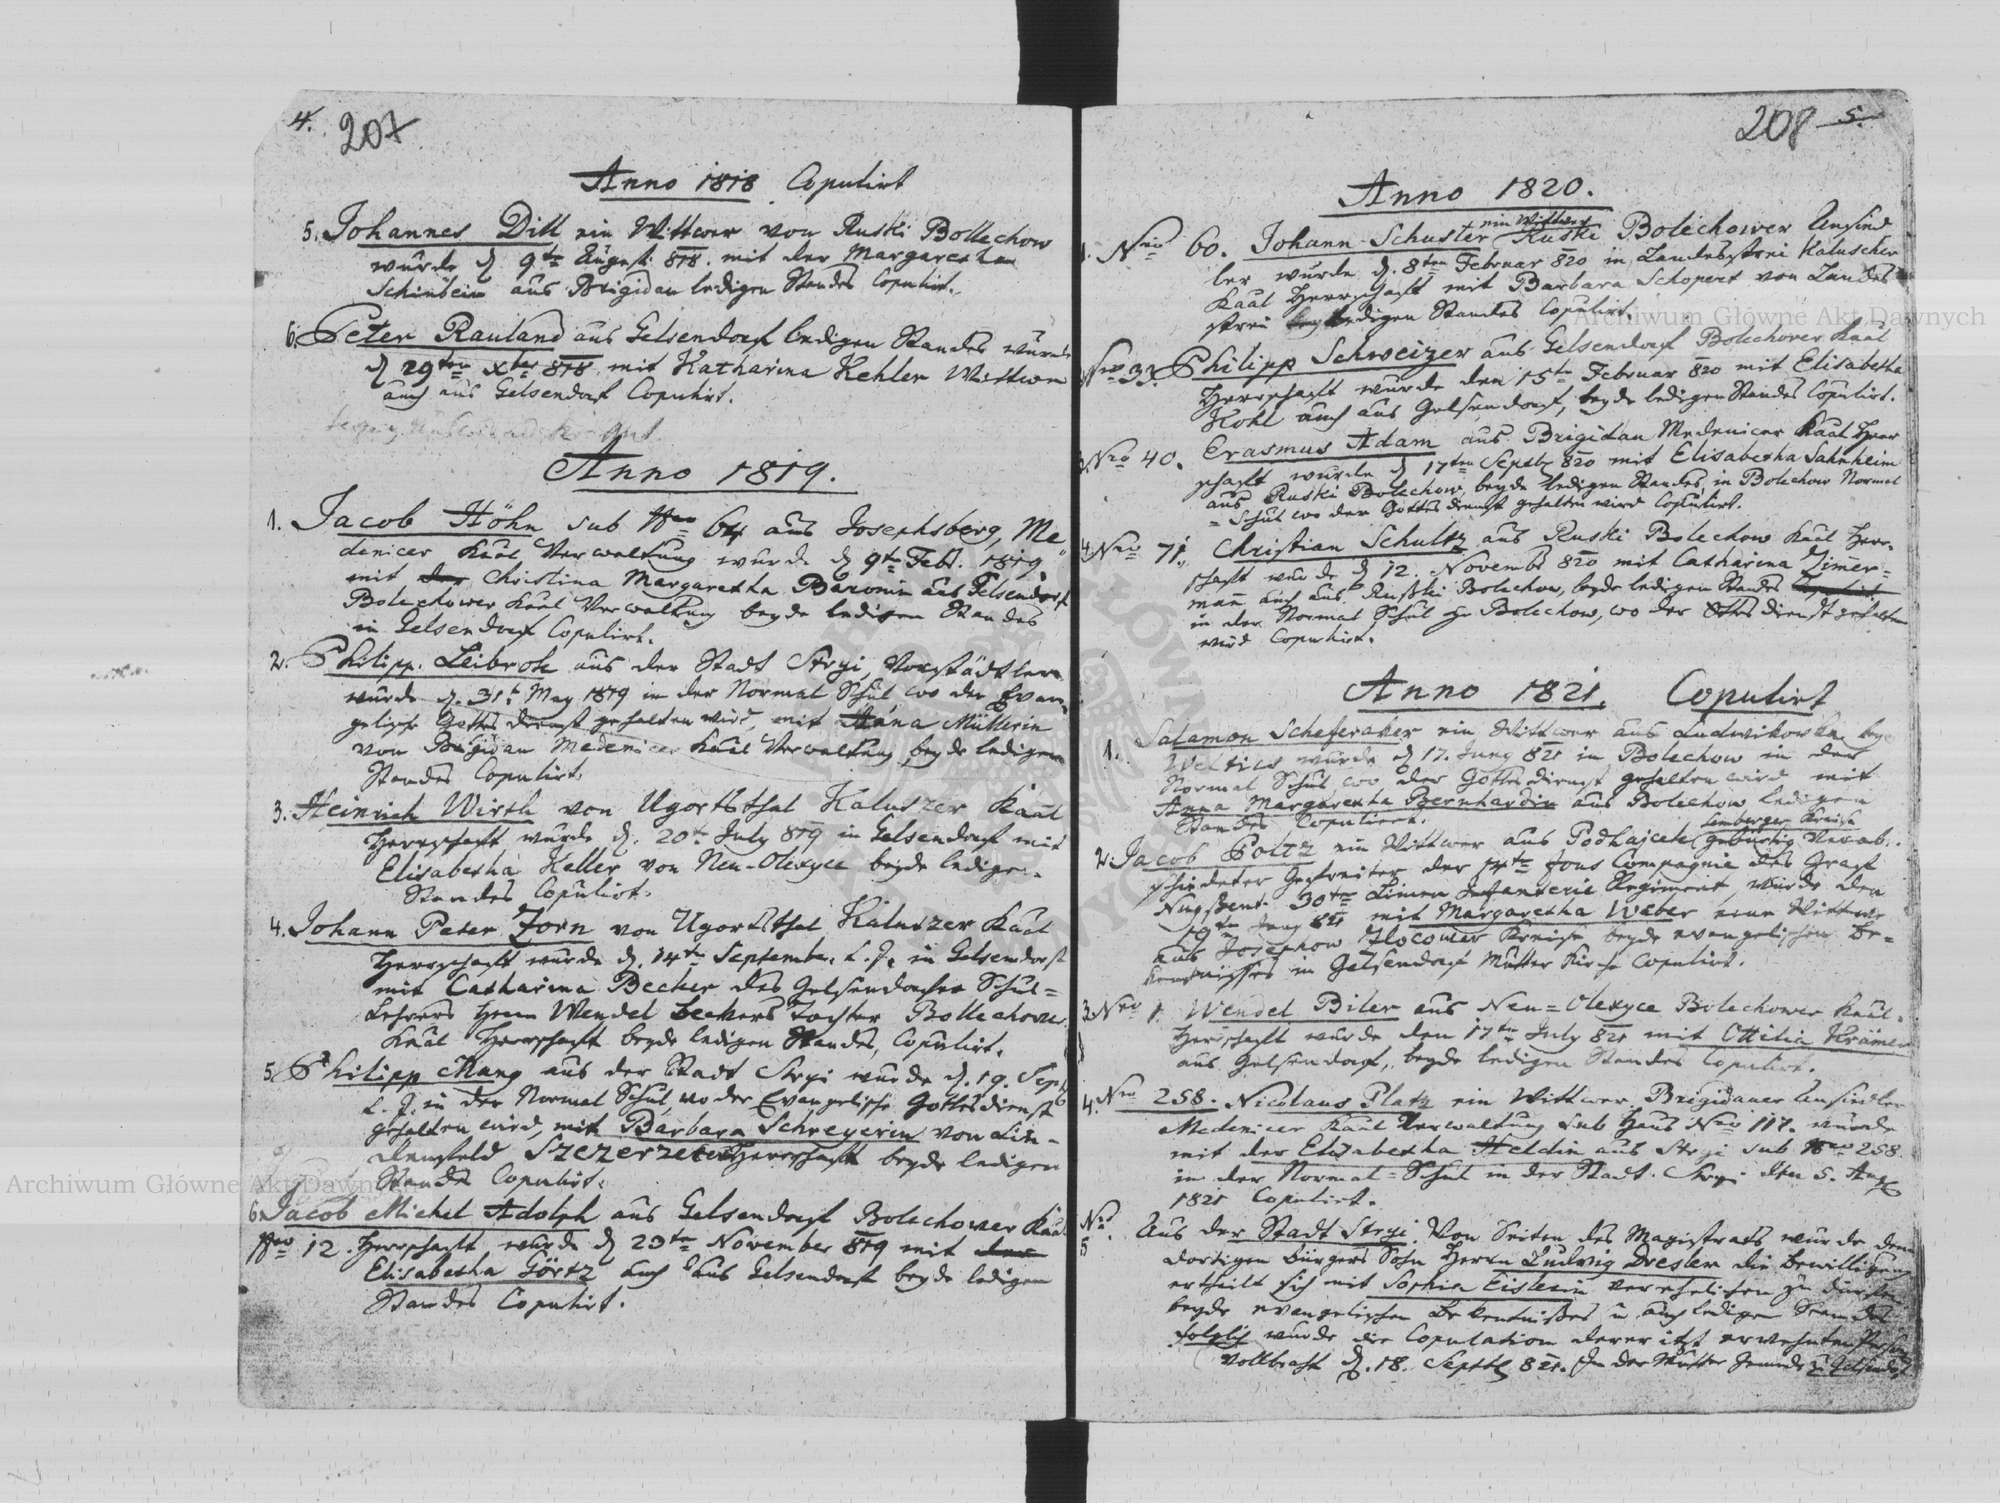 4. 207
Anno 1818 Copulirt
5. Johannes Dill ein Wittwer von Ruski Bollechow
wurde d 9te August 818. mit der Margaretha
Schinbein aus Brigidau ledigen Standes Copulirt.
6. Peter Rauland aus Gelsendorf ledigen Standes wurde
d 29ten Xber 818 mit Katharina Kehler Wittwe
auch aus Gelsendorf Copulirt.
Anno 1819.
1. Jacob Höhn sub Nro 64 aus Josephsberg, Me-
denicer Kaal Verwaltung wurde d 9te Feb. 1819
mit der Christina Margaretha Baronin aus Gelsendorf
Bolechower Kaal Verwaltung beyde ledigen Standes
in Gelsendorf Copulirt.
2. Philipp Leibrok aus der Stadt Stryi, Vorstädtler
wurde d. 31t May 1819 in der Normal Schul wo der Evan-
gelische Gottes dienst gehalten wird, mit Anna Müllerin
von Brigidau Medenicer Kaal Verwaltung beyde ledigen
Standes Copulirt.
3. Heinrich Wirth von Ugortsthal Kaluszer Kaal
Herrschaft, wurde d. 20t July 819 in Gelsendorf mit
Elisabetha Keller von Neu-Olexyce beyde ledigen
Standes Copulirt.
4. Johann Peter Zorn von Ugortsthal Kaluszer Kaal
Herrschaft wurde d. 14te September l. J. in Gelsendorf
mit Catharina Becker des Gelsendorfer Schul=
Lehrers Herrn Wendel Beckers Tochter Bollechower
Kaal Herrschaft beyde ledigen Standes, Copulirt.
5. Philipp Mang aus der Stadt Stryi wurde d. 19. Sept
l. J. in der Normal Schul wo der Evangelische Gottesdienst
gehalten wird, mit Barbara Schreyerin von Lin-
denfeld Szczerzecer Herrschaft beyde ledigen
Standes Copulirt.
6. Jacob Michel Adolph aus Gelsendorf Bolechower Kaal
Nro 12. Herrschaft, wurde d 23ten November 819 mit der
Elisabetha Görtz auch aus Gelsendorf beyde ledigen
Standes Copulirt.
208 5.
Anno 1820.
ein Wittwer
1. Nro 60. Johann Schuster Ruski Bolechower Ansied
ler wurde d. 8ten Februar 820 in Landestreu Kaluscher
Kaal Herrschaft mit Barbara Schopert von Landes
treu ledigen Standes Copulirt.
Nro 33. Philipp Schweizer aus Gelsendorf Bolechower Kaal
Herrschaft wurde den 15te Februar 820 mit Elisabetha
Kohl auch aus Gelsendorf, beyde ledigen Standes Copulirt.
3 Nro 40. Erasmus Adam aus Brigidau Medenicer Kaal Herr
schaft wurde d 17ten Septb 820 mit Elisabetha Sahnheim
aus Ruski Bolechow, beyde ledigen Standes, in Bolechow Normal
= Schul wo der Gottes dienst gehalten wird Copulirt.
4. Nro 71. Christian Schultz aus Ruski Bolechow Kaal Herr-
schaft wurde d 12. Novemb 820 mit Catharina Zimer=
mann auch aus Russki Bolechow, beyde ledigen Standes Copulirt
in der Normal Schul zu Bolechow, wo der Gottes dienst gehalten
wird Copulirt.
Anno 1821. Copulirt
1. Salamon Scheferaker ein Wittwer aus Ludwikowka
wurde d 17. Juny 821 in Bolechow in der
Normal Schul, wo der Gottesdienst gehalten wird mit
Anna Margaretha Bernhardin aus Bolechow ledigen
Standes Copuliert.
Lemberger Kreise
2. Jacob Poltz ein Wittwer aus Podhajcek gebürtig Verab-
schiedeter Gefreiter der 14te Compagnie des Graf
Nugstent 30ten Linien Infanterie Regiment, wurde den
19ten Juny 821 mit Margaretha Weber einer Wittwe
aus Josephow Zlocower Kreise beyde evangelischen Be=
kenntnisses in Gelsendorf Mutter Kirche Copulirt.
3. Nro 1. Wendel Biler aus Neu=Olexyce Bolechower Kaal-
Herrschaft wurde, den 17te July 821 mit Ottilia Krämer
aus Gelsendorf, beyde ledigen Standes Copulirt.
4. Nro 258. Nicolaus Platz ein Wittwer, Brigidauer Ansiedler
Medenicer Kaal Verwaltung sub Haus Nro 117. wurde
mit der Elisabetha Heldin aus Stryi sub Nro 258
in der Normal=Schul in der Stadt Stryi den 5. Aug
1821 Copulirt.
Nro 5. Aus der Stadt Stryi. Von Seiten des Magistrats wurde dem
dortigen Bürgers Sohn Herrn Ludwig Dresler die Bewilligung
ertheilt sich mit Sophia Eislein verehelichen zu dürfen
beyde evangelischen Bekentnißes u auch ledigen Standes
folglich wurde die Copulation derer itzt erwehnten Personen
vollbracht d. 18. Septb 821. In der Mutter Gemeinde z Gelsendorf
Archiwum Główne Akt Dawnych
Archiwum Główne Akt Dawnych